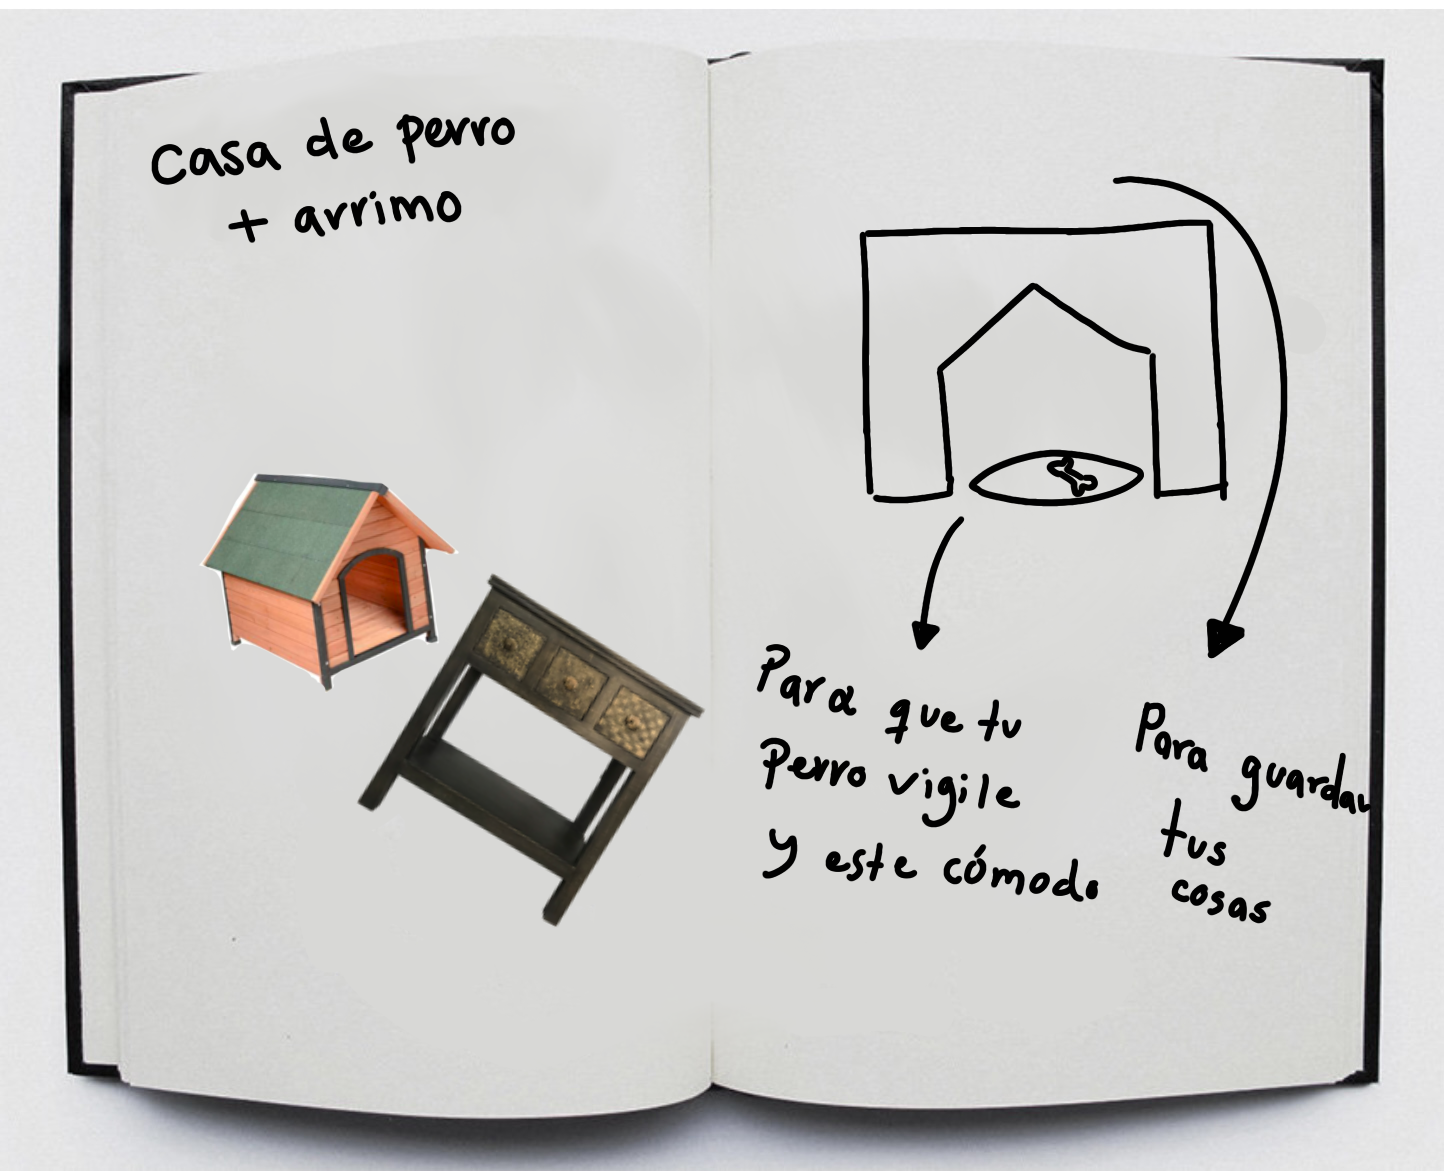 Casa de perro
+ arrimo
Para que tu
Perro vigile
y este cómodo
Para guardar
tus
cosas